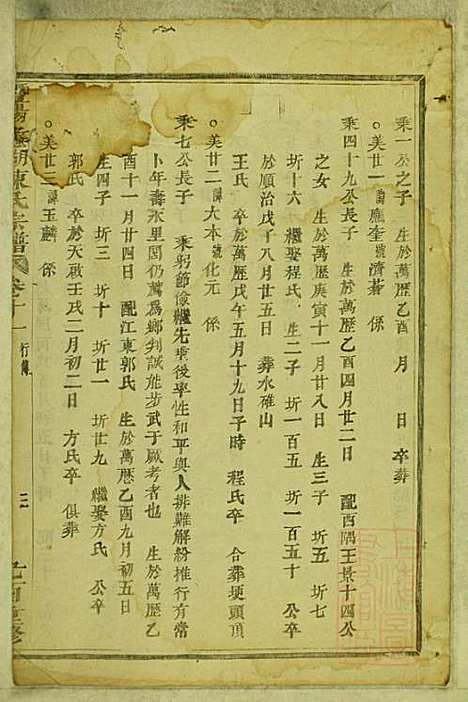 秉一公之子 生於萬歷乙酉 月 日 卒葬
○美廿一 諱應奎 號濟蒼 係
秉四十九公長子 生於萬歷乙酉四月廿二日 配西隅王景十四公
之女 生於萬歷庚寅十一月廿八日 生三子 圻五 圻七
圻十六 繼娶程氏 生二子 圻一百五 圻一百五十 公卒
於順治戊子八月廿五日 葬水碓山
王氏 卒於萬歷戊午五月十九日子時 程氏卒 合葬埂頭頂
○美廿二 諱大本 號化元 係
秉七公長子 秉躬節儉繼先垂後率性和平與人排難解紛推行有常
卜年壽永里閭仍薦為鄉判誠能步武于厥考者也 生於萬歷乙
酉十一月廿四日 配江東郭氏 生於萬歷乙酉九月初五日
生四子 圻三 圻十 圻廿一 圻廿九 繼娶方氏 公卒
郭氏 卒於天啟壬戌二月初二日 方氏卒 俱葬
○美廿三 諱玉麟 係
陽 湖陳氏宗譜 卷十一 行傳 三